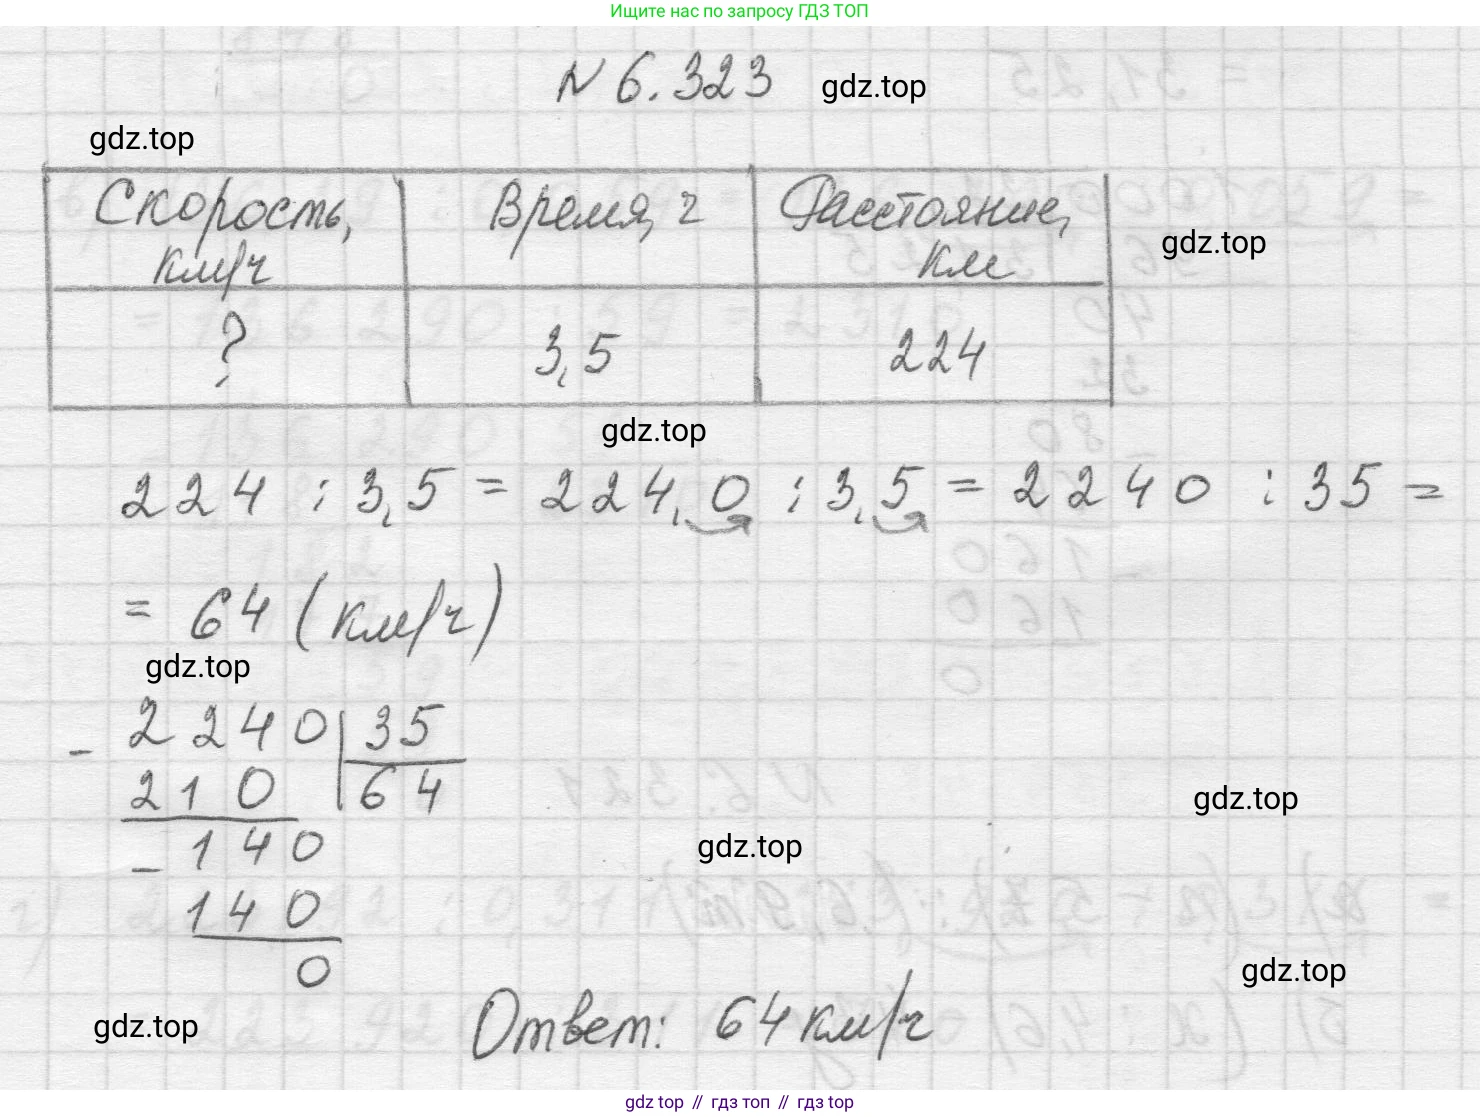 Ищите нас по запросу ГДЗ ТОП
N 6.323
gdz.top
gdz.top
Скорость, км/ч
Время, ч
Расстояние, км
gdz.top
?
3,5
224
gdz.top
224 : 3,5 = 224,0 : 3,5 = 2240 : 35 =
= 64 (км/ч)
gdz.top
- 2240 35
210 64
gdz.top
- 140
gdz.top
140
0
gdz.top
gdz.top
Ответ: 64 км/ч
gdz top // гдз топ // гдз top